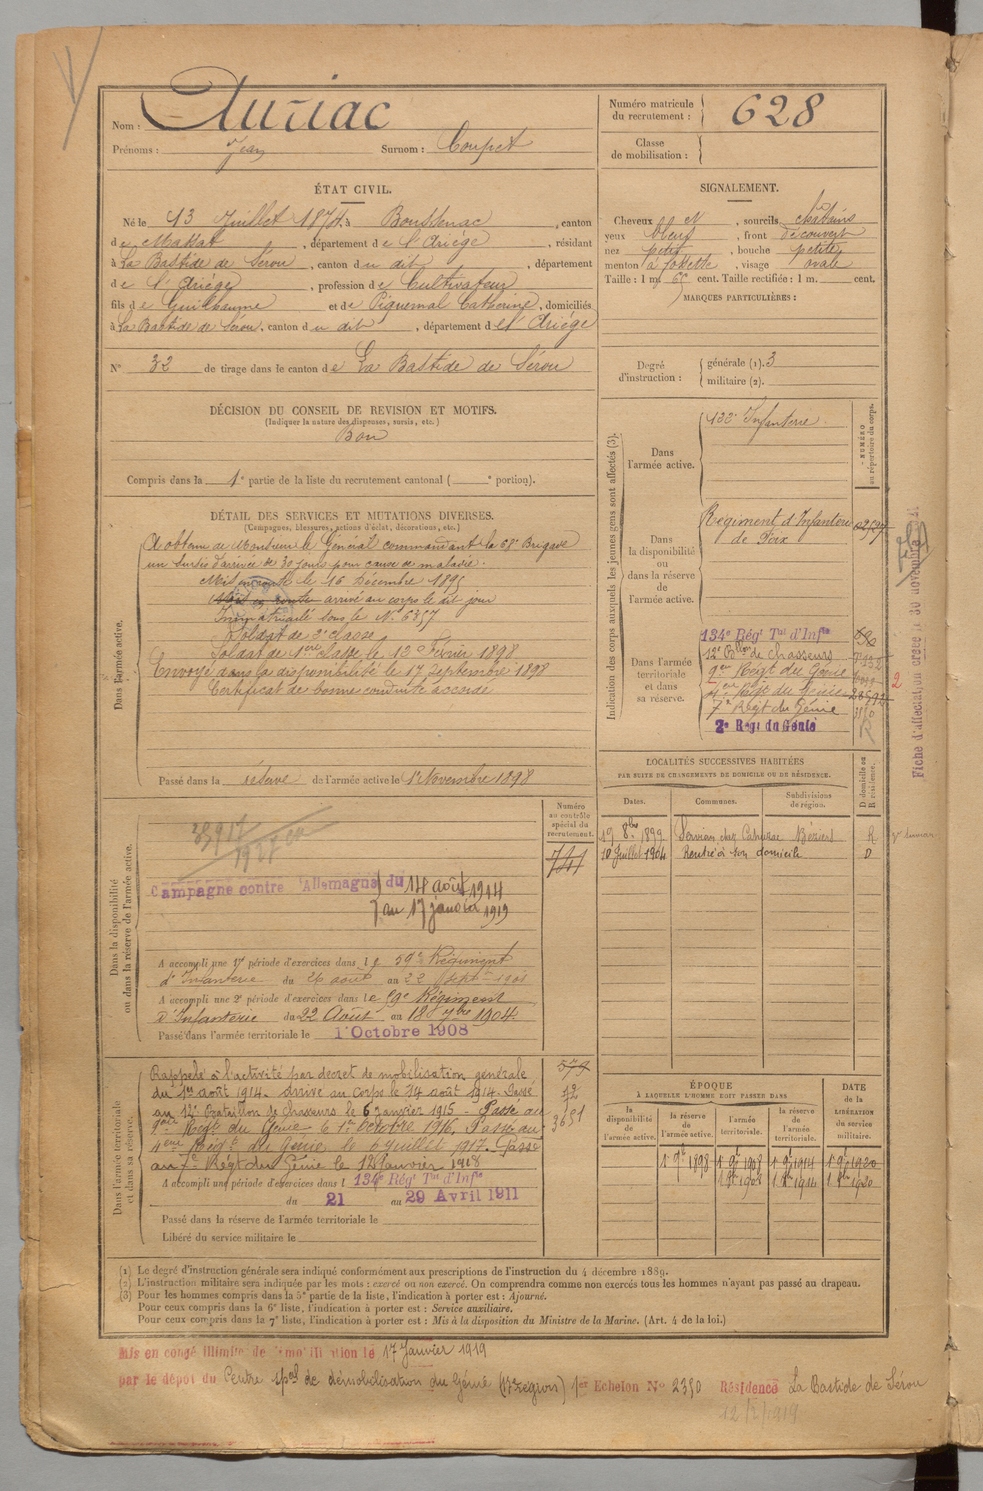 Nom : Auriac
Prénoms : Jean Surnom : Coupet
Numéro matricule du recrutement : 628
Classe de mobilisation :
ÉTAT CIVIL.
Né le 13 Juillet 1874, à Boussenac, canton
de Massat, département de l'Ariège, résidant
à La Bastide de Sérou, canton du dit, département
de l'Ariège, profession de Cultivateur
fils de Guilhaume et de Piquemal Catherine, domiciliés
à La Bastide de Sérou, canton du dit, département de l'Ariège
N° 32 de tirage dans le canton de La Bastide de Sérou
SIGNALEMENT.
Cheveux N, sourcils chatains
yeux bleus, front découvert
nez petit, bouche petite
menton à fossette, visage ovale
Taille : 1 m. 65 cent. Taille rectifiée : 1 m. cent.
MARQUES PARTICULIÈRES :
Degré d'instruction : générale (1). 3
militaire (2).
DÉCISION DU CONSEIL DE REVISION ET MOTIFS.
(Indiquer la nature des dispenses, sursis, etc.)
Bon
Compris dans la 1e partie de la liste du recrutement cantonal ( e portion).
DÉTAIL DES SERVICES ET MUTATIONS DIVERSES.
(Campagnes, blessures, actions d'éclat, décorations, etc.)
Dans l'armée active.
A obtenu de Monsieur le Général commandant la 68e Brigade
un sursis d'arrivée de 30 jours pour cause de maladie.
Mis en route le 16 Décembre 1895
arrivé au corps le dit jour
Immatriculé sous le N° 6357
Soldat de 2e classe
Soldat de 1ère classe le 12 Février 1898
Envoyé dans la disponibilité le 17 Septembre 1898
Certificat de bonne conduite accordé
Passé dans la réserve de l'armée active le 1er Novembre 1898
Indication des corps auxquels les jeunes gens sont affectés (3).
NUMÉRO au répertoire du corps.
Dans l'armée active. 122e Infanterie
Dans la disponibilité ou dans la réserve de l'armée active.
Régiment d'Infanterie
de Foix
Dans l'armée territoriale et dans sa réserve.
134e Régt Tal d'Infie
12e Bllon de chasseurs
9e Régt du Génie
4ème Régt du Génie
7e Régt du Génie
2e Rég. du Génie
Fiche d'affectation créée le 30 novembre
LOCALITÉS SUCCESSIVES HABITÉES
PAR SUITE DE CHANGEMENTS DE DOMICILE OU DE RÉSIDENCE.
Dates. Communes. Subdivisions de région. D domicile ou R résidence.
19 8bre 1899 Servian chez Cahuzac Béziers R
10 Juillet 1904 Rentré à son domicile D
Dans la disponibilité ou dans la réserve de l'armée active.
Numéro au contrôle spécial du recrutement.
741
Campagne contre l'Allemagne du 14 août 1914
au 17 janvier 1919
A accompli une 1e période d'exercices dans le 59e Régiment
d'Infanterie du 26 août au 22 Septre 1901
A accompli une 2e période d'exercices dans le 59e Régiment
d'Infanterie du 22 Août au 18 7bre 1904
Passé dans l'armée territoriale le 1 Octobre 1908
Dans l'armée territoriale et dans sa réserve.
Rappelé à l'activité par décret de mobilisation générale
du 1er août 1914. Arrivé au corps le 14 août 1914. Passé
au 12e Bataillon de Chasseurs le 6 janvier 1915 - Passé au
9ème Régt du Génie le 1er Octobre 1916. Passé au
4ème Régt du Génie le 6 juillet 1917. Passé
au 7e Régt du Génie le 12 Janvier 1918
A accompli une période d'exercices dans l 134e Rég' Tal d'Infie
du 21 au 29 Avril 1911
Passé dans la réserve de l'armée territoriale le
Libéré du service militaire le
ÉPOQUE
À LAQUELLE L'HOMME DOIT PASSER DANS
la disponibilité de l'armée active. la réserve de l'armée active. l'armée territoriale. la réserve de l'armée territoriale.
DATE de la LIBÉRATION du service militaire.
1 9bre 1898 1 9bre 1908 1 9bre 1914 1 9bre 1920
1 8bre 1908 1 8bre 1914 1 8bre 1920
(1) Le degré d'instruction générale sera indiqué conformément aux prescriptions de l'instruction du 4 décembre 1889.
(2) L'instruction militaire sera indiquée par les mots : exercé ou non exercé. On comprendra comme non exercés tous les hommes n'ayant pas passé au drapeau.
(3) Pour les hommes compris dans la 5e partie de la liste, l'indication à porter est : Ajourné.
Pour ceux compris dans la 6e liste, l'indication à porter est : Service auxiliaire.
Pour ceux compris dans la 7e liste, l'indication à porter est : Mis à la disposition du Ministre de la Marine. (Art. 4 de la loi.)
Mis en congé illimité de démobilisation le 17 Janvier 1919
par le dépôt du Centre spal de démobilisation du Génie (17e région) 1er Echelon N° 2350 Résidence La Bastide de Sérou